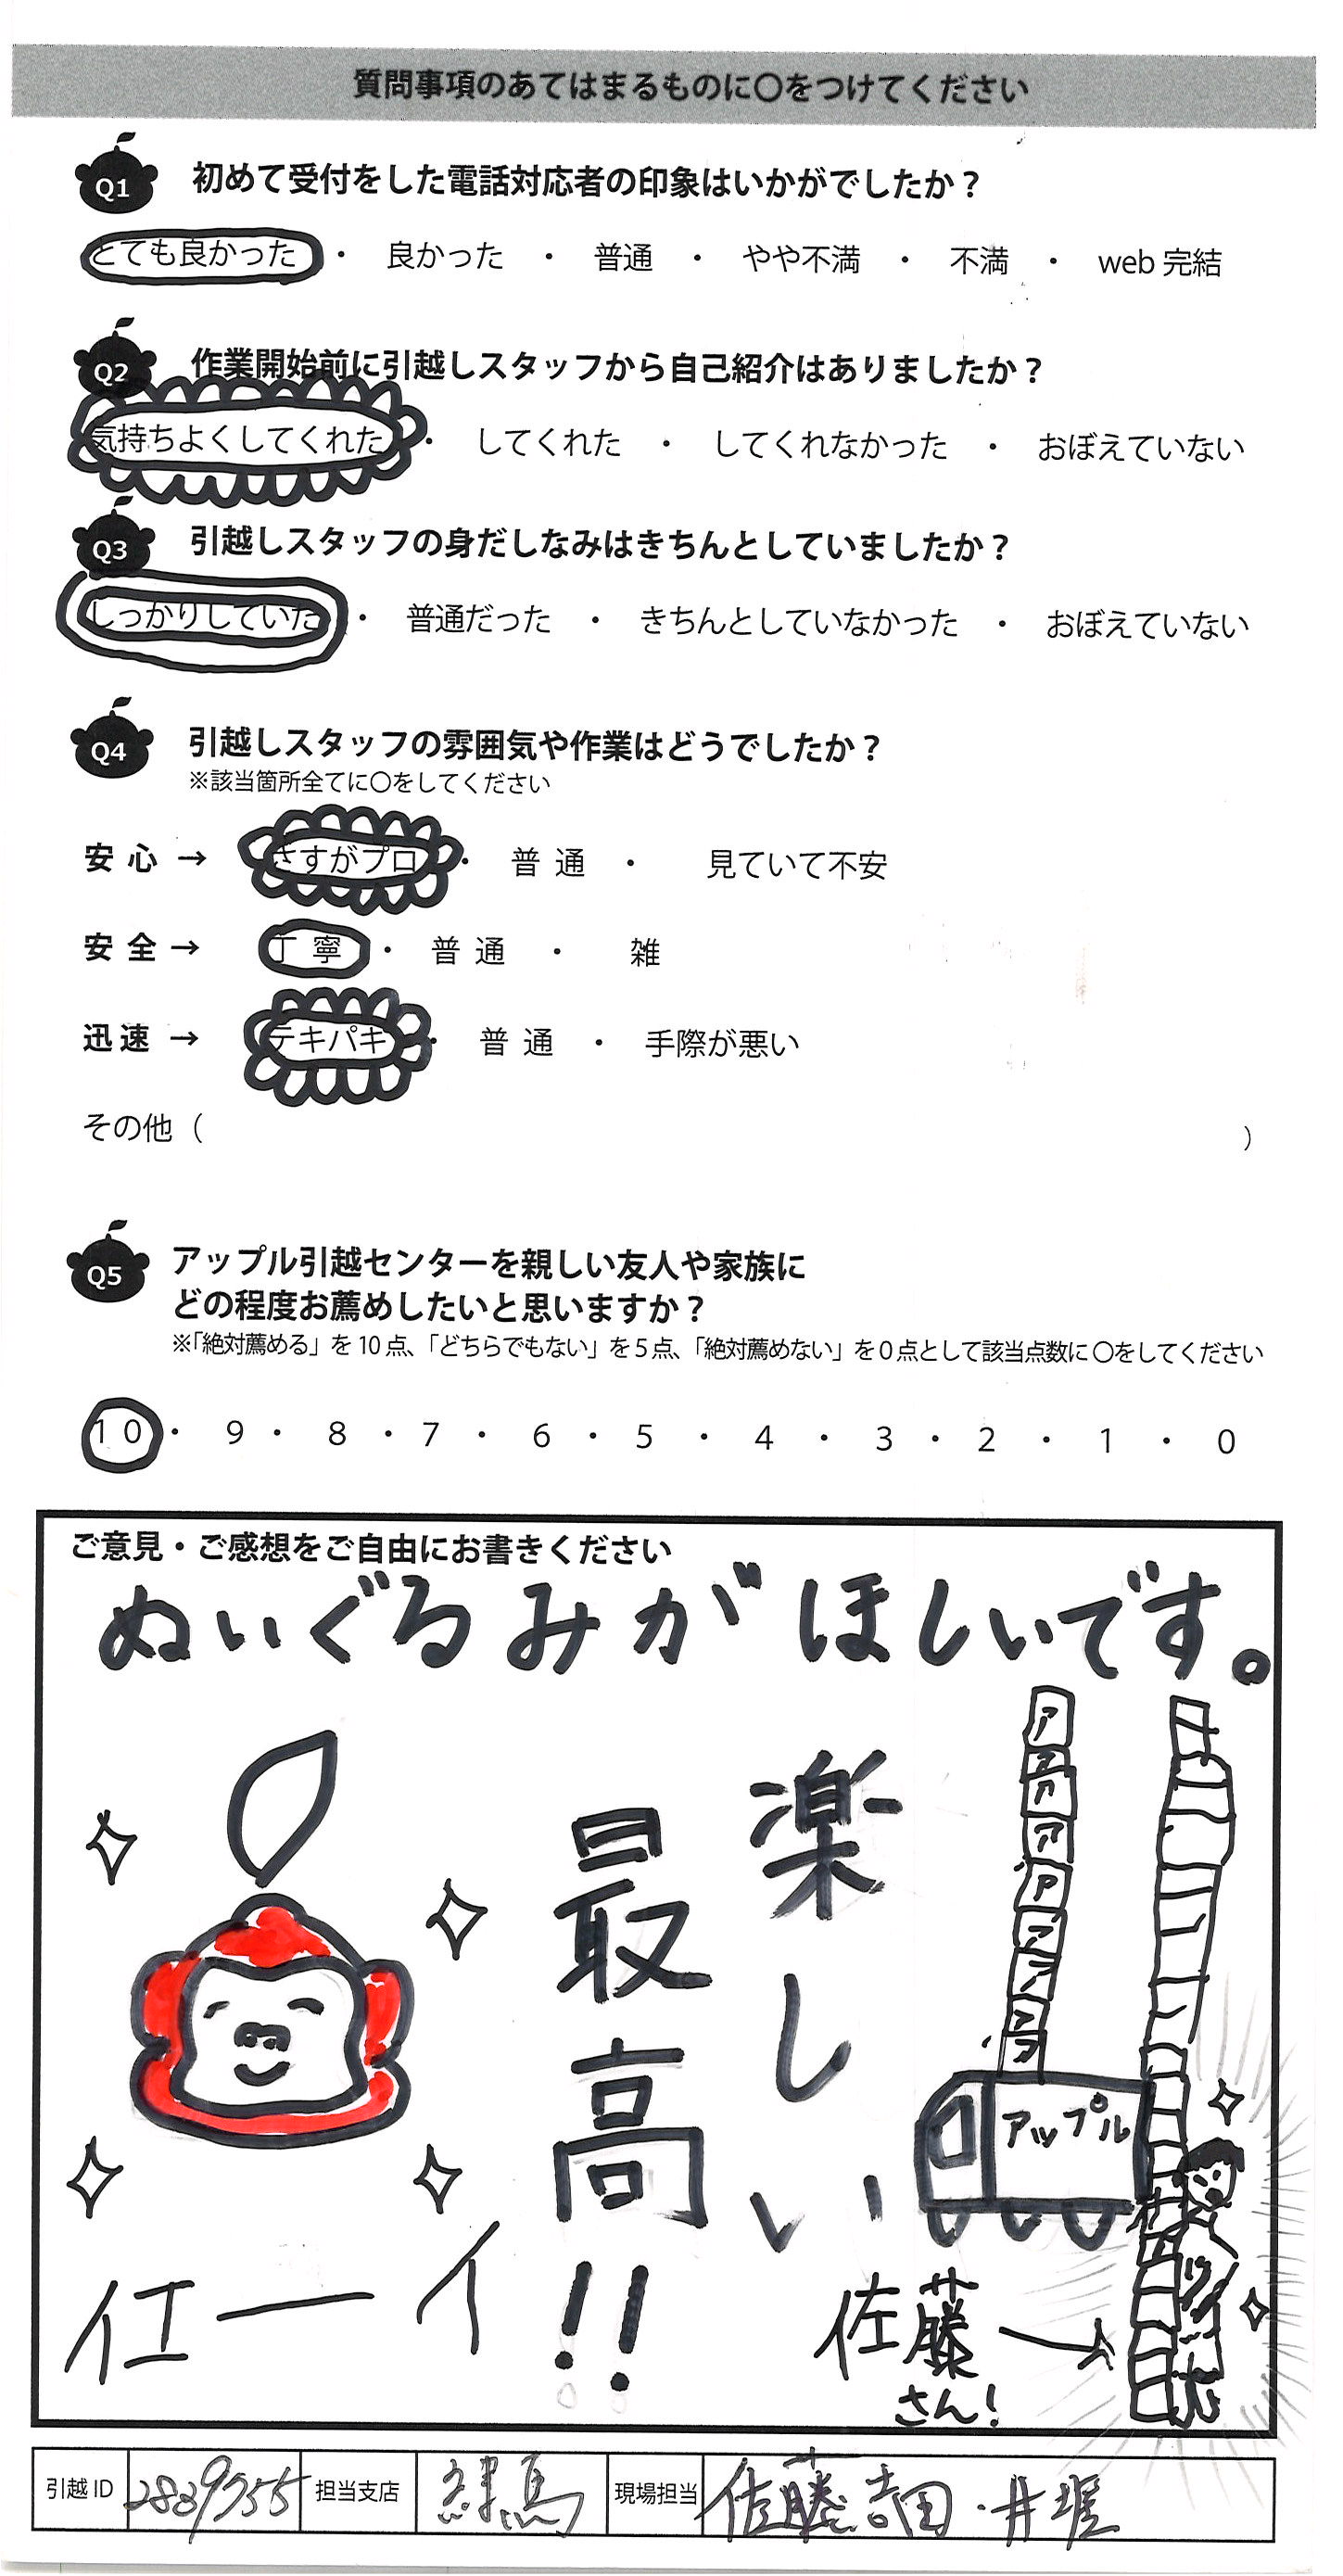 質問事項のあてはまるものに〇をつけてください
Q1 初めて受付をした電話対応者の印象はいかがでしたか？
とても良かった ・ 良かった ・ 普通 ・ やや不満 ・ 不満 ・ web 完結
Q2 作業開始前に引越しスタッフから自己紹介はありましたか？
気持ちよくしてくれた ・ してくれた ・ してくれなかった ・ おぼえていない
Q3 引越しスタッフの身だしなみはきちんとしていましたか？
しっかりしていた ・ 普通だった ・ きちんとしていなかった ・ おぼえていない
Q4 引越しスタッフの雰囲気や作業はどうでしたか？
※該当箇所全てに〇をしてください
安心 → さすがプロ ・ 普通 ・ 見ていて不安
安全 → 丁寧 ・ 普通 ・ 雑
迅速 → テキパキ ・ 普通 ・ 手際が悪い
その他（ ）
Q5 アップル引越センターを親しい友人や家族に
どの程度お薦めしたいと思いますか？
※「絶対薦める」を 10 点、「どちらでもない」を 5 点、「絶対薦めない」を 0 点として該当点数に〇をしてください
10 ・ 9 ・ 8 ・ 7 ・ 6 ・ 5 ・ 4 ・ 3 ・ 2 ・ 1 ・ 0
ご意見・ご感想をご自由にお書きください
ぬいぐるみがほしいです。
楽しい
最高!!
イエーイ
アップル
佐藤
さん!
引越 ID 2889755 担当支店 練馬 現場担当 佐藤 吉田・井堀